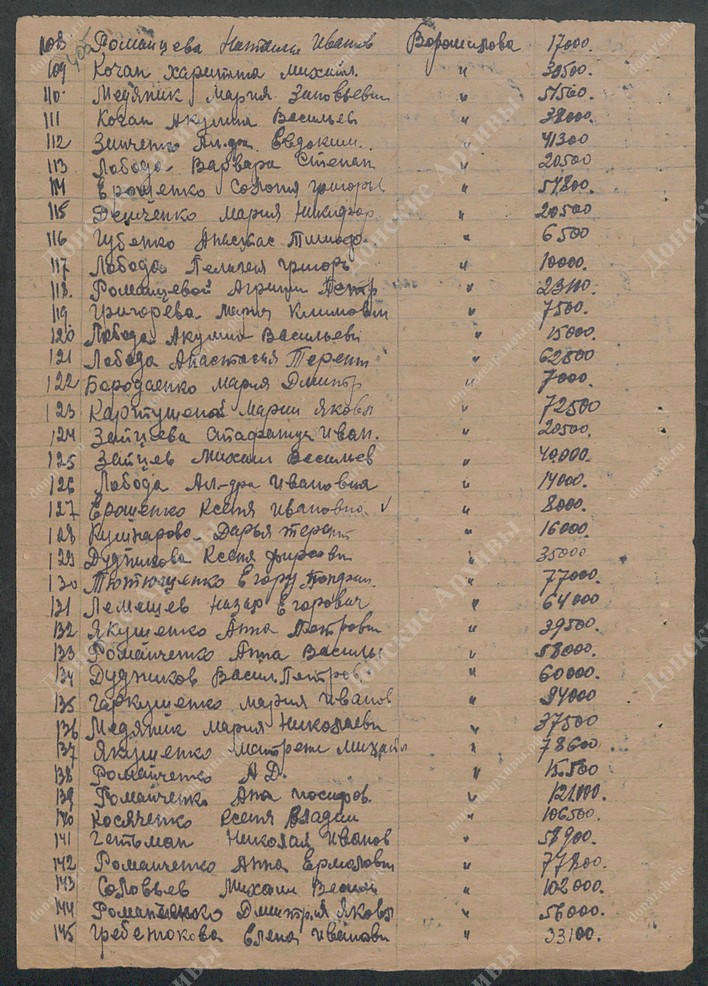 108 Романцева Наталия Иванов Ворошилова 17000.
109 Кочан Харитта Михайл. " 30500.
110. Медяник Мария Зиновьевн " 51560.
111 Кочан Акулина Васильев " 38000.
112 Зинченко Ал-дра Евдоким.. " 41300
113 Лобода Варвара Степан " 20500
114 Ерошенко София Григорьев " 51800.
115 Демченко Мария Никифор " 20500
116 Губенко Анастас. Тимоф. " 6500
117 Лобода Пелагея Григорь " 10000.
118. Романцевой Агрипин Петр " 23100.
119 Григорева Мария Климовн " 7500.
120 Лобода Акулина Васильевн " 15000.
121 Лобода Анастасья Терент " 62800
122 Бородаенко Мария Дмитр " 7000.
123 Картушеной Марии Яковл " 72500
124 Зайцева Стафанида Иван. " 20500.
125 Зайцев Михаил Васильев " 40000.
126 Лобода Ал-дра Ивановна " 14000.
127 Ерошенко Ксеня Ивановна v " 8000.
128 Кушнарова Дарья Терент " 16000.
129 Дудникова Ксеня " 35000
130 Тютюценко Егору " 77000.
131 Лемешев Назар Егорович " 64000
132 Якушенко Анна Петровн " 39500.
133 Романченко Анна Василь " 58000.
134 Дудников Васил. Петров. " 60000.
135 Гаркушенко Мария Иванов " 94000
136 Медяник Мария Николаевн " 37500
137 Якушенко Матрене Михайл " 78600.
138 Романченко А Д. " 15.500
139 Романченко Ана Иосифов. " 121000.
140 Косяченко Ксеня Владим " 106500
141 Гетьман Николай Иванов " 58900.
142 Романченко Анна Ермолаевн " 77800.
143 Соловьев Михаил Василь " 102000.
144 Романченко Дмитрия Яковл " 56000.
145 Гребенюкова Елена Ивановн " 33100.